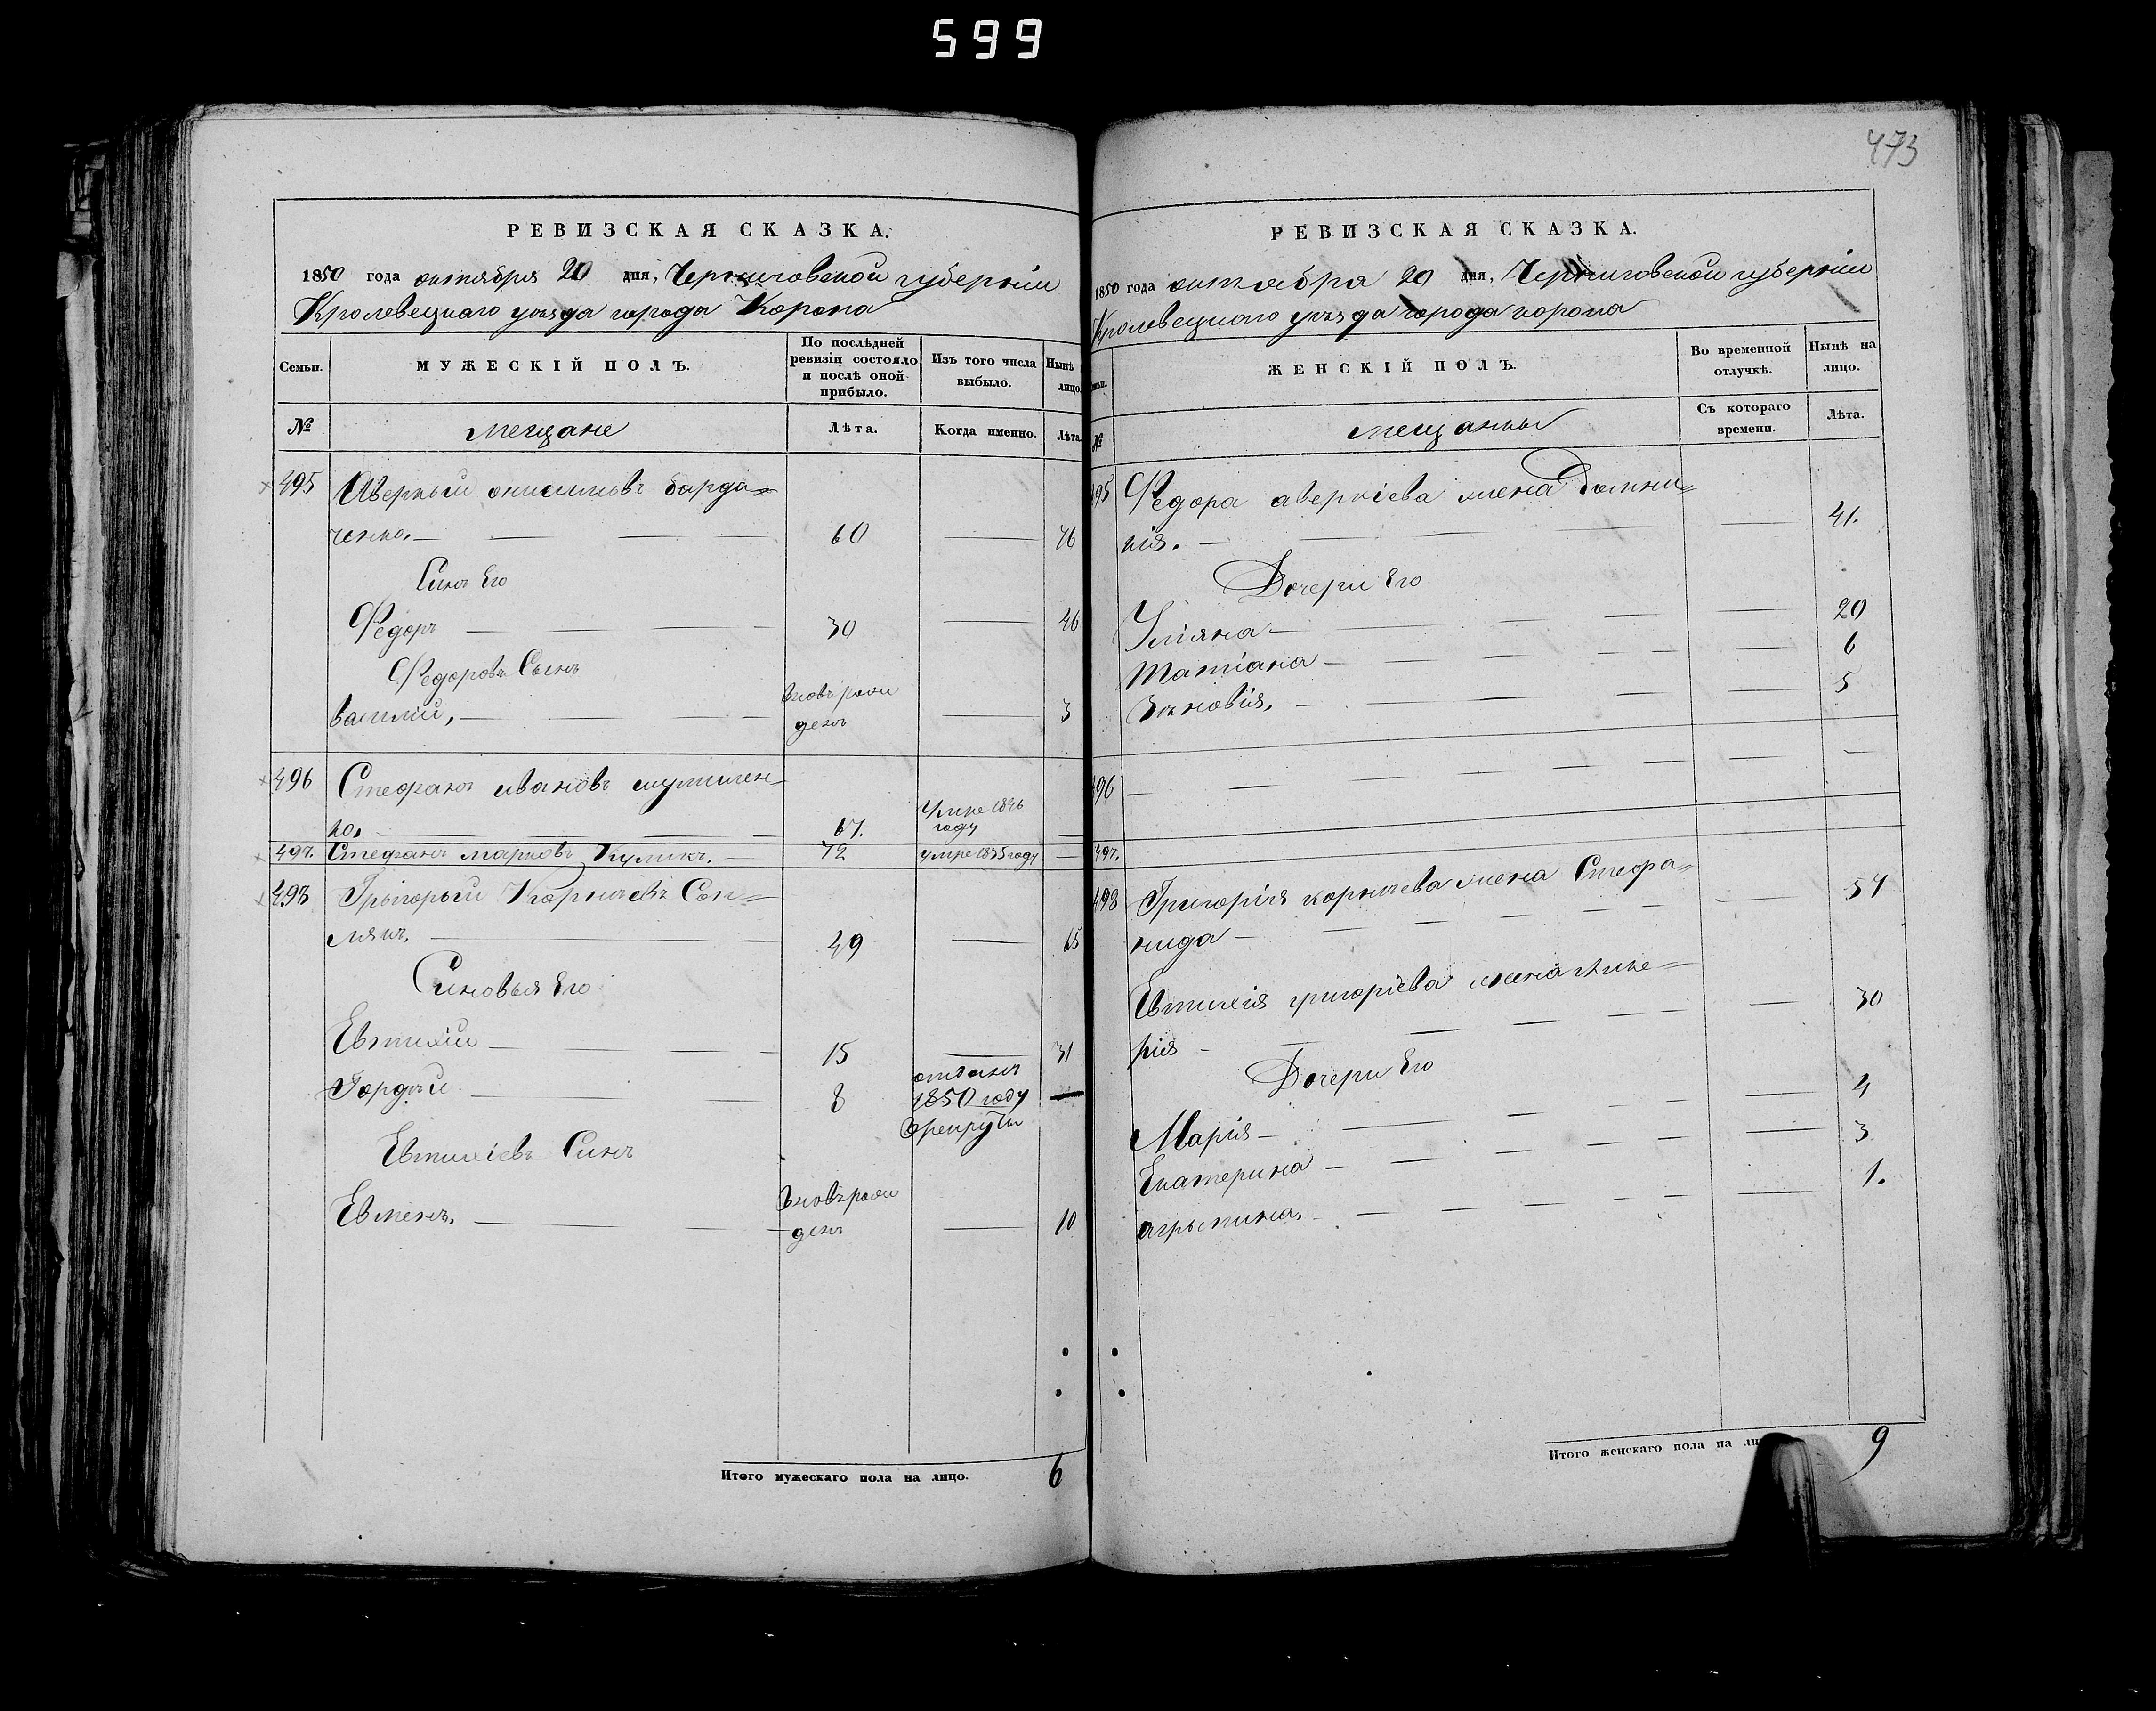 599
РЕВИЗСКАЯ СКАЗКА.
1850 года октября 20 дня, Черниговской губерніи
Кролевецкаго уѣзда города Коропа
Семьи.
МУЖЕСКІЙ ПОЛЪ.
По послѣдней
ревизіи состояло
и послѣ оной
прибыло.
Изъ того числа
выбыло.
Нынѣ
лицо.
№
мещане
Лѣта.
Когда именно.
Лѣта.
495 Аверкый онисимовъ барда=
ченко. 60 76
Синъ Его
Федоръ 30 46
Федоровъ Сынъ
василій, вновърож
денъ 3
496 Стефанъ ивановъ
ко. 67. Умре 1846
году
497. Стефанъ марковъ Куликъ. 72 умре 1835 году
498 Грыгорый Корнѣевъ
49 65
Синовья Его
Евтихій 15 31
Гордѣй 8 отданъ
1850 году
врекруты
Евтихіевъ Синъ
Евменъ. вновърож
денъ 10
Итого мужескаго пола на лицо. 6
473
РЕВИЗСКАЯ СКАЗКА.
1850 года октября 20 дня, Черниговской губерніи
Кролевецкаго уѣзда города коропа
ЖЕНСКІЙ ПОЛЪ.
Во временной
отлучкѣ.
Нынѣ на
лицо.
№
мещанки
Съ котораго
времени.
Лѣта.
495 Федора аверкіева жена Домни=
кія. 41.
Дочери Его
Уліяна 20
Татіана 6
Зѣновія. 5
496
497.
498 Григорія корнѣева жена Стефа= 54
нида
Евтихія григоріева жена Глике= 30
рія
Дочери Его
Марія 4
Екатерина 3
агрыпина. 1.
Итого женскаго пола на ли 9